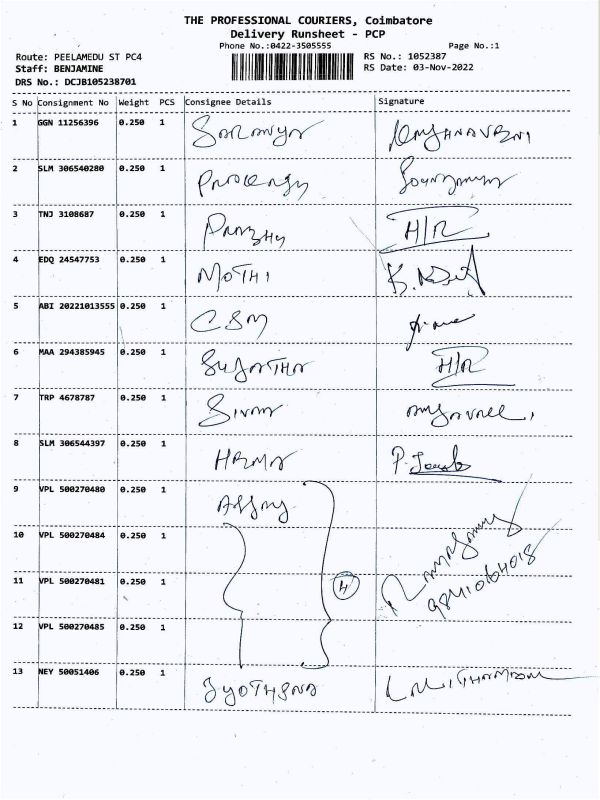 THE PROFESSIONAL COURIERS, Coimbatore
Delivery Runsheet - PCP
Phone No.:0422-3505555 Page No.:1
Route: PEELAMEDU ST PC4 RS No.: 1052387
Staff: BENJAMINE RS Date: 03-Nov-2022
DRS No.: DCJB105238701
S No Consignment No Weight PCS Consignee Details Signature
1 GGN 11256396 0.250 1 SARANYA
2 SLM 306540280 0.250 1
3 TNJ 3108687 0.250 1 PRABHU H/R
4 EDQ 24547753 0.250 1 MOTHI
5 ABI 20221013555 0.250 1 CSM
6 MAA 294385945 0.250 1 SUJATHA H/R
7 TRP 4678787 0.250 1 SIVA
8 SLM 306544397 0.250 1 HEMA
9 VPL 500270480 0.250 1
10 VPL 500270484 0.250 1
11 VPL 500270481 0.250 1 4 9841064018
12 VPL 500270485 0.250 1
13 NEY 50051406 0.250 1 JYOTHSNA